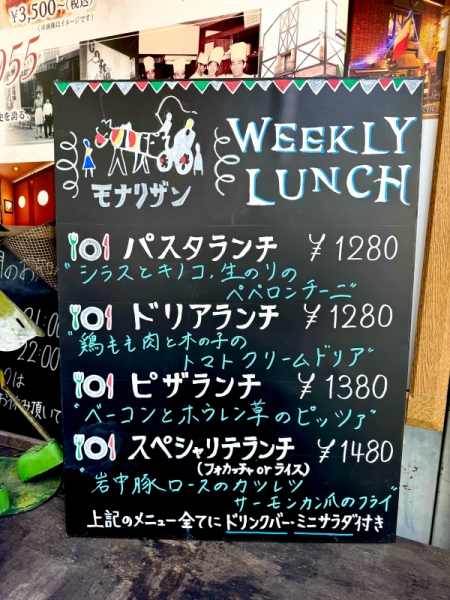 ¥3,500~(税込)
(※画像はイメージです)
955
史を誇る
モナリザン
WEEKLY
LUNCH
パスタランチ ¥1280
"シラスとキノコ、生のりの
ペペロンチーニ"
ドリアランチ ¥1280
"鶏もも肉と木の子の
トマトクリームドリア"
ピザランチ ¥1380
"ベーコンとホウレン草のピッツァ"
スペシャリテランチ ¥1480
(フォカッチャorライス)
"岩中豚ロースのカツレツ
サーモンカン爪のフライ"
上記のメニュー全てにドリンクバー・ミニサラダ付き
21:00
22:00